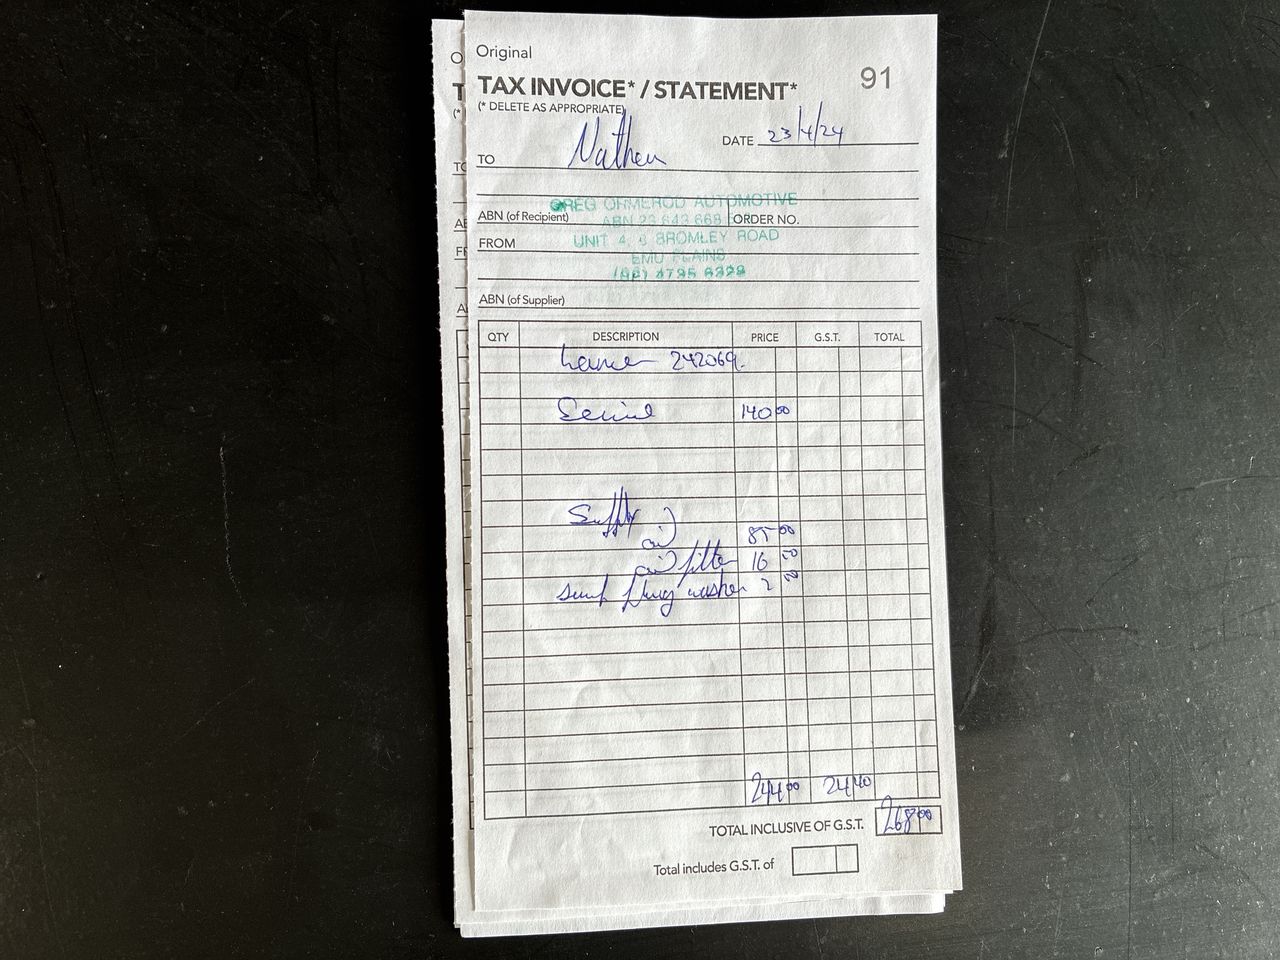 Original
TAX INVOICE* / STATEMENT* 91
(* DELETE AS APPROPRIATE)
TO Nathan DATE 23/4/24
GREG ORMEROD AUTOMOTIVE
ABN (of Recipient) ABN 23 643 668 ORDER NO.
FROM UNIT 4, BROMLEY ROAD
EMU PLAINS
4735 6329
ABN (of Supplier)
QTY DESCRIPTION PRICE G.S.T. TOTAL
Lancer 242069.
Service 140 00
Supply
oil 85 00
oil filter 16 50
sump plug washer 2 50
244 00 24 40
TOTAL INCLUSIVE OF G.S.T. 268 00
Total includes G.S.T. of